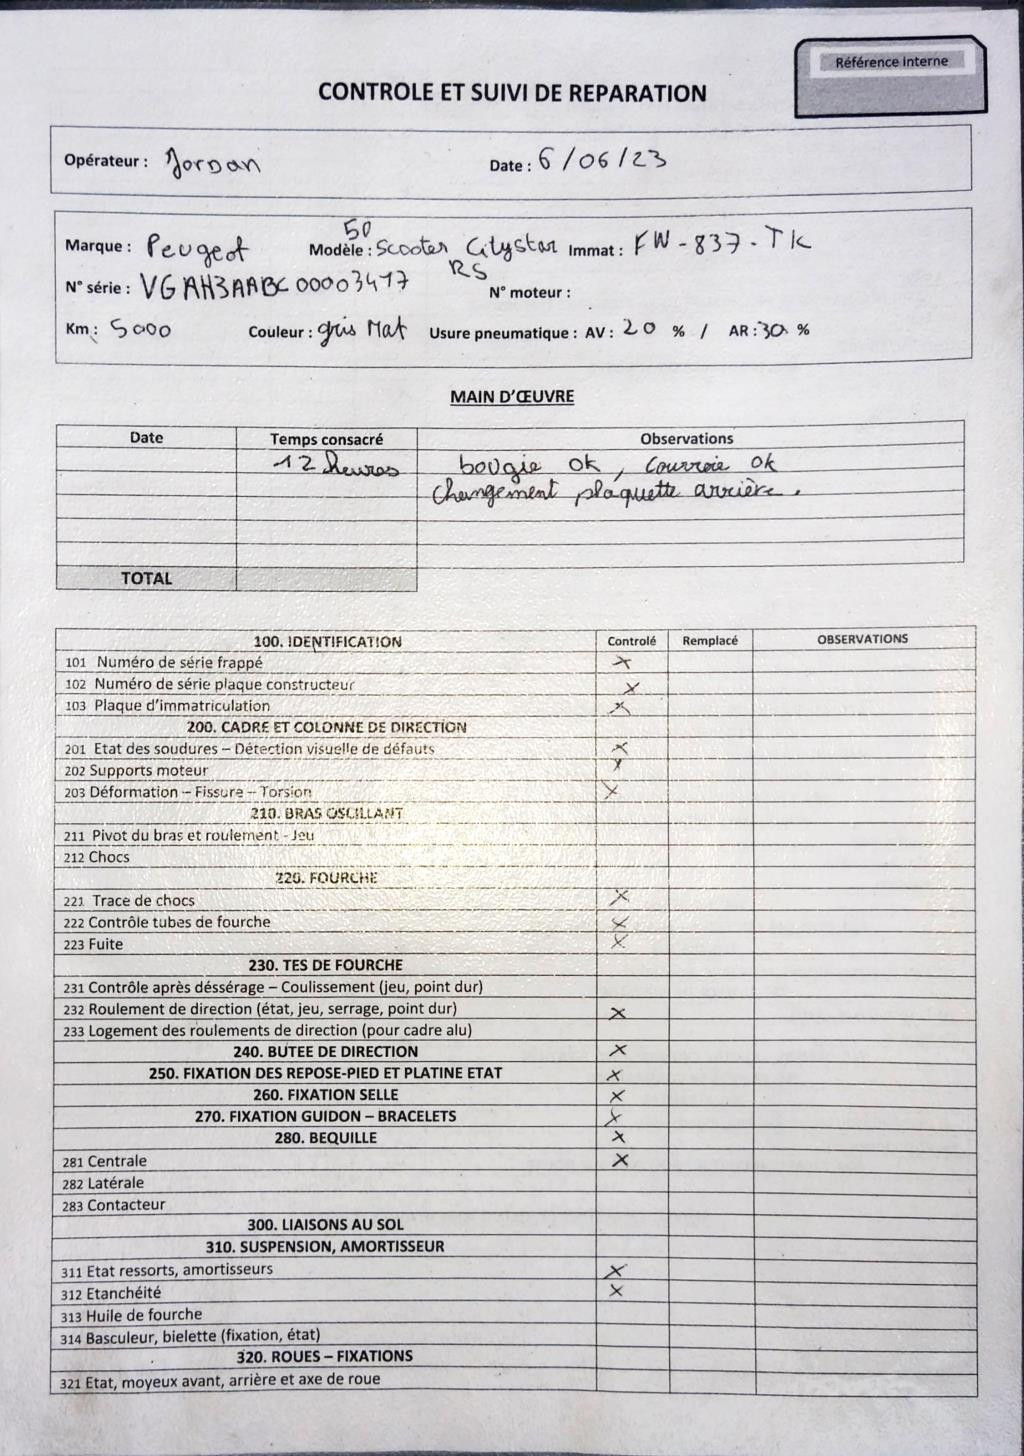 Référence interne
CONTROLE ET SUIVI DE REPARATION
Opérateur : Jordan Date : 6/06/23
50
Marque : Peugeot Modèle : Scooter Citystar Immat : FW-837-TK
RS
N° série : VGAH3AABC00003417 N° moteur :
Km : 5000 Couleur : gris Mat Usure pneumatique : AV : 20 % / AR : 30 %
MAIN D'ŒUVRE
Date Temps consacré Observations
12 heures bougie ok, courroie ok
changement plaquette arrière.
TOTAL
100. IDENTIFICATION Controlé Remplacé OBSERVATIONS
101 Numéro de série frappé X
102 Numéro de série plaque constructeur X
103 Plaque d'immatriculation X
200. CADRE ET COLONNE DE DIRECTION
201 Etat des soudures – Détection visuelle de défauts X
202 Supports moteur X
203 Déformation – Fissure – Torsion X
210. BRAS OSCILLANT
211 Pivot du bras et roulement - Jeu
212 Chocs
220. FOURCHE
221 Trace de chocs X
222 Contrôle tubes de fourche X
223 Fuite X
230. TES DE FOURCHE
231 Contrôle après déssérage – Coulissement (jeu, point dur)
232 Roulement de direction (état, jeu, serrage, point dur) X
233 Logement des roulements de direction (pour cadre alu)
240. BUTEE DE DIRECTION X
250. FIXATION DES REPOSE-PIED ET PLATINE ETAT X
260. FIXATION SELLE X
270. FIXATION GUIDON – BRACELETS X
280. BEQUILLE X
281 Centrale X
282 Latérale
283 Contacteur
300. LIAISONS AU SOL
310. SUSPENSION, AMORTISSEUR
311 Etat ressorts, amortisseurs X
312 Etanchéité X
313 Huile de fourche
314 Basculeur, bielette (fixation, état)
320. ROUES – FIXATIONS
321 Etat, moyeux avant, arrière et axe de roue